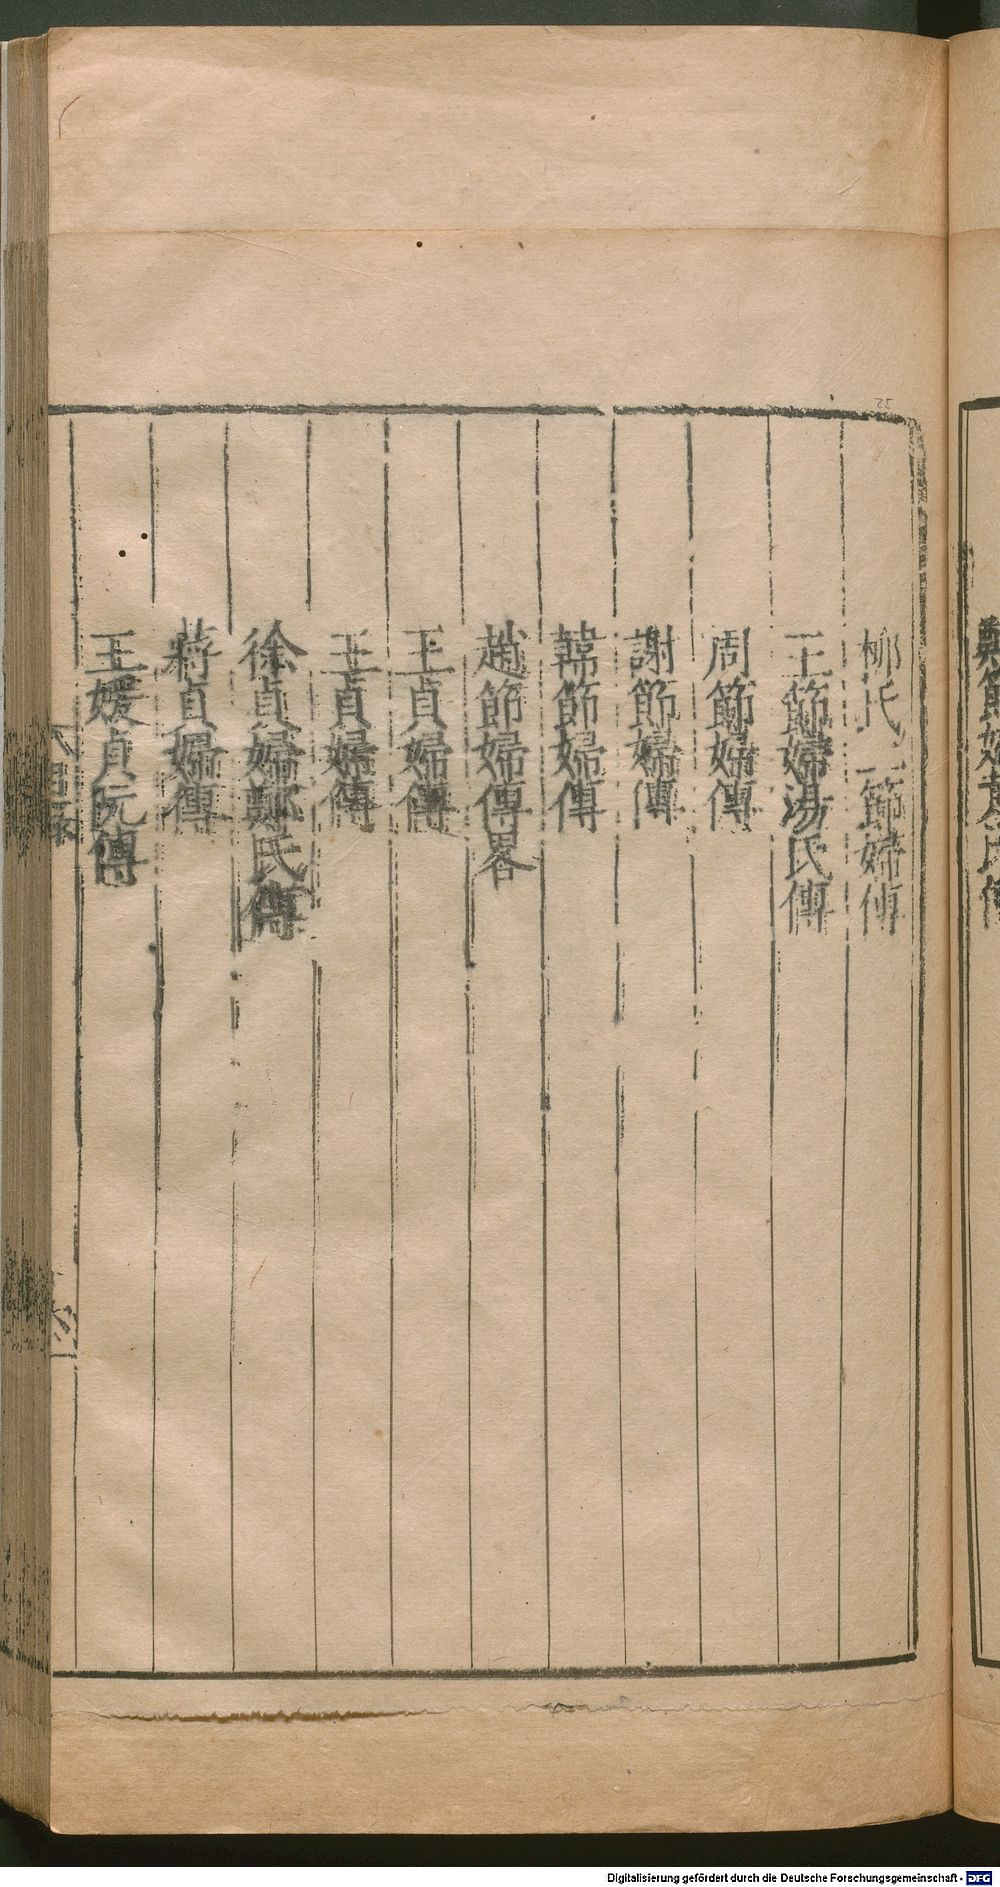 柳氏二節婦傳
王節婦湯氏傳
周節婦傳
謝節婦傳
韓節婦傳
趙節婦傳畧
王貞婦傳
王貞婦傳
徐貞婦鄭氏傳
蔣貞婦傳
王媛貞阮傳
25
Digitalisierung gefördert durch die Deutsche Forschungsgemeinschaft - DFG